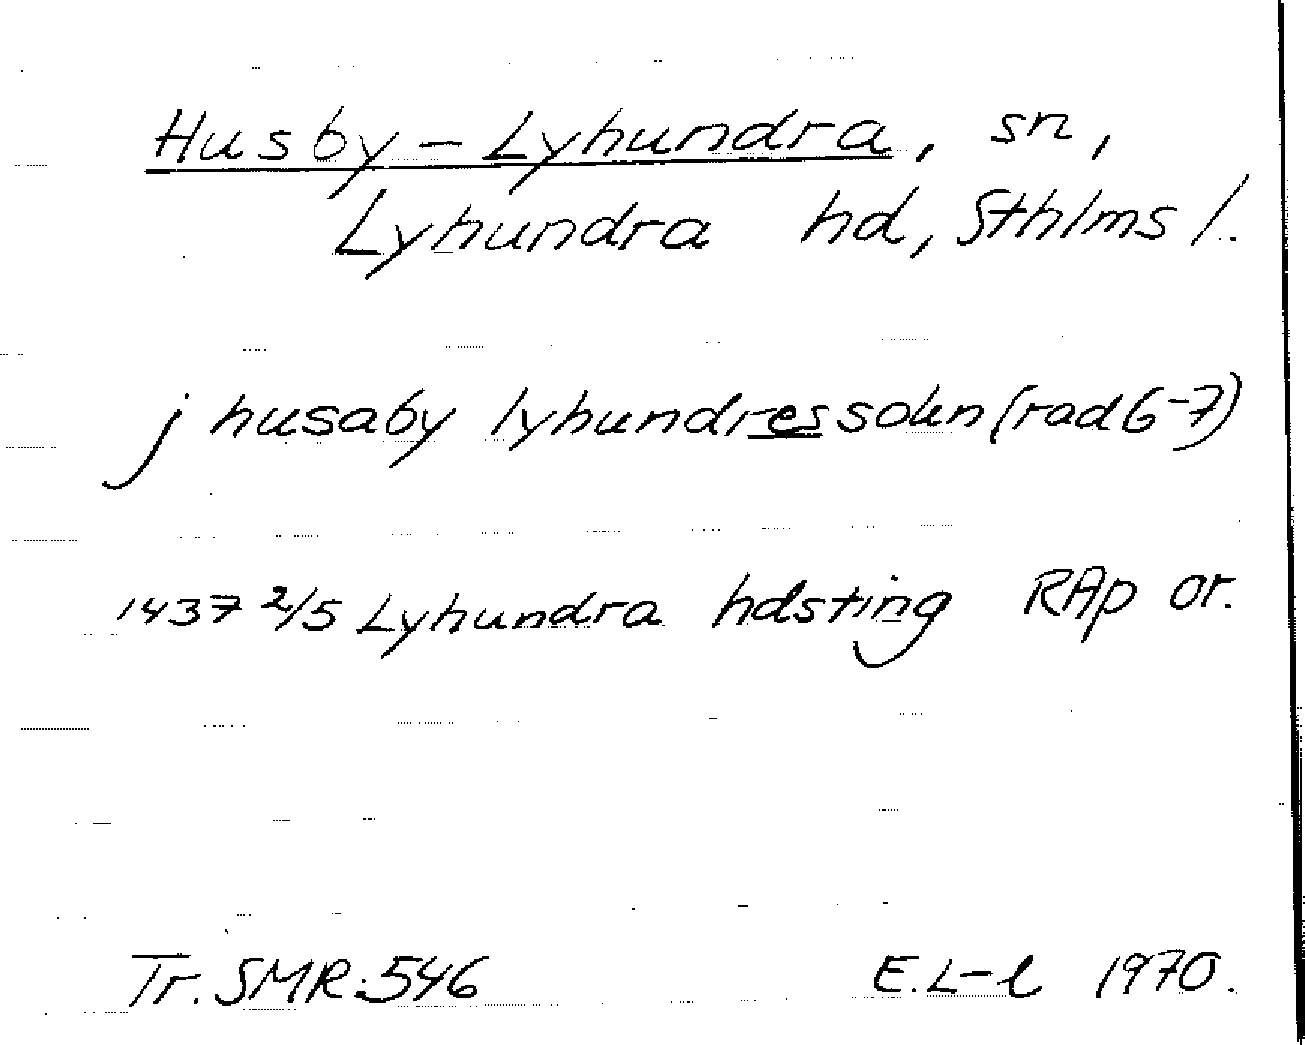 Husby-Lyhundra, sn,
Lyhundra hd, Sthlms l.
j husaby lyhundressokn (rad 6-7)
1437 2/5 Lyhundra hdsting RAp or.
Tr. SMR:546 E.L-l 1970.